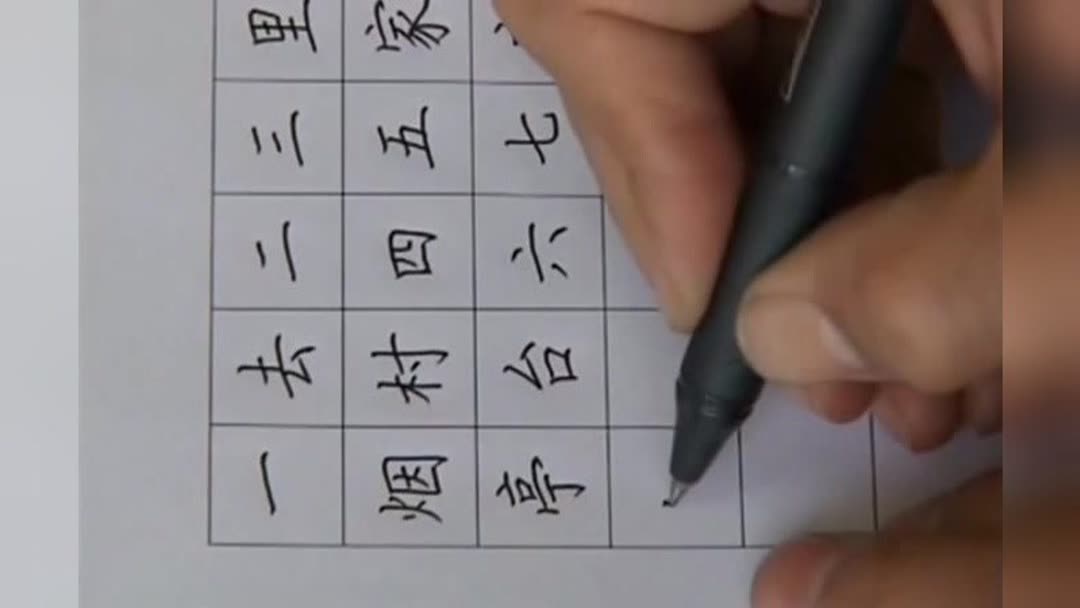 一去二三里
烟村四五家
亭台六七